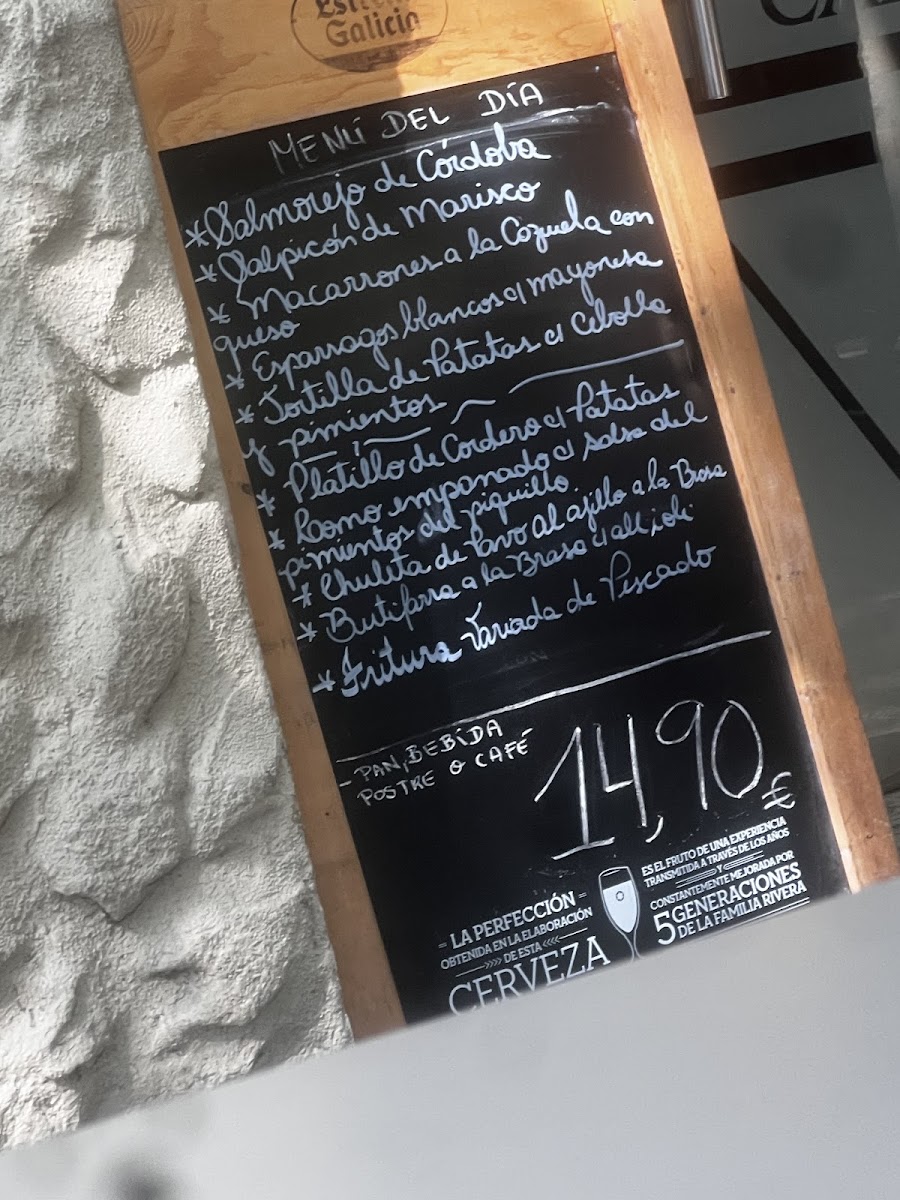 Estrella
Galicia
MENÚ DEL DÍA
* Salmorejo de Córdoba
* Salpicón de Marisco
* Macarrones a la Cazuela con
queso
* Esparragos blancos c/ mayonesa
* Tortilla de Patatas c/ Cebolla
y pimientos
* Platillo de Cordero c/ Patatas
* Lomo empanado c/ salsa del
pimientos del piquillo.
* Chuleta de Pavo al ajillo a la Brasa
* Butifarra a la Brasa c/ all i oli
* Fritura Variada de Pescado
- PAN, BEBÍDA
POSTRE O CAFÉ
14,90
€
LA PERFECCIÓN
OBTENIDA EN LA ELABORACIÓN
DE ESTA
CERVEZA
ES EL FRUTO DE UNA EXPERIENCIA
TRANSMITIDA A TRAVÉS DE LOS AÑOS
Y
CONSTANTEMENTE MEJORADA POR
5 GENERACIONES
DE LA FAMILIA RIVERA